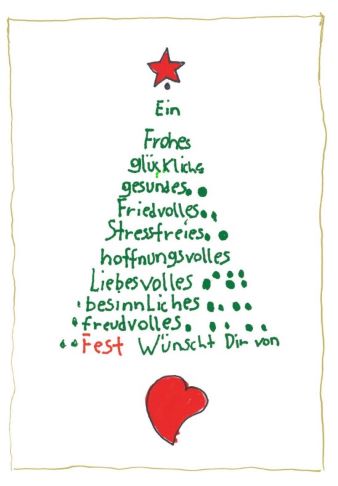 Ein
Frohes
glückliches
gesundes
Friedvolles
Stressfreies
hoffnungsvolles
Liebesvolles
besinnliches
freudvolles
Fest Wünscht Dir von